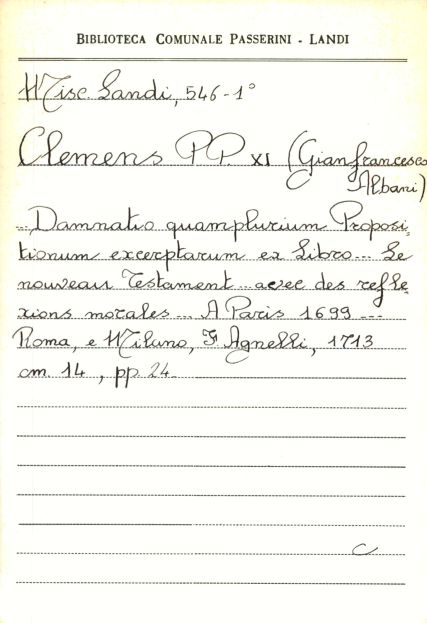 BIBLIOTECA COMUNALE PASSERINI - LANDI
Misc Landi, 546-1°
Clemens PP. XI (Gianfrancesco
Albani)
... Damnatio quamplurium Proposi,
tionum excerptarum ex Libro... Le
nouveau Testament... avec des refle,
xions morales... A Paris 1699 ...
Roma, e Milano, F Agnelli, 1713
cm. 14, pp. 24.
C